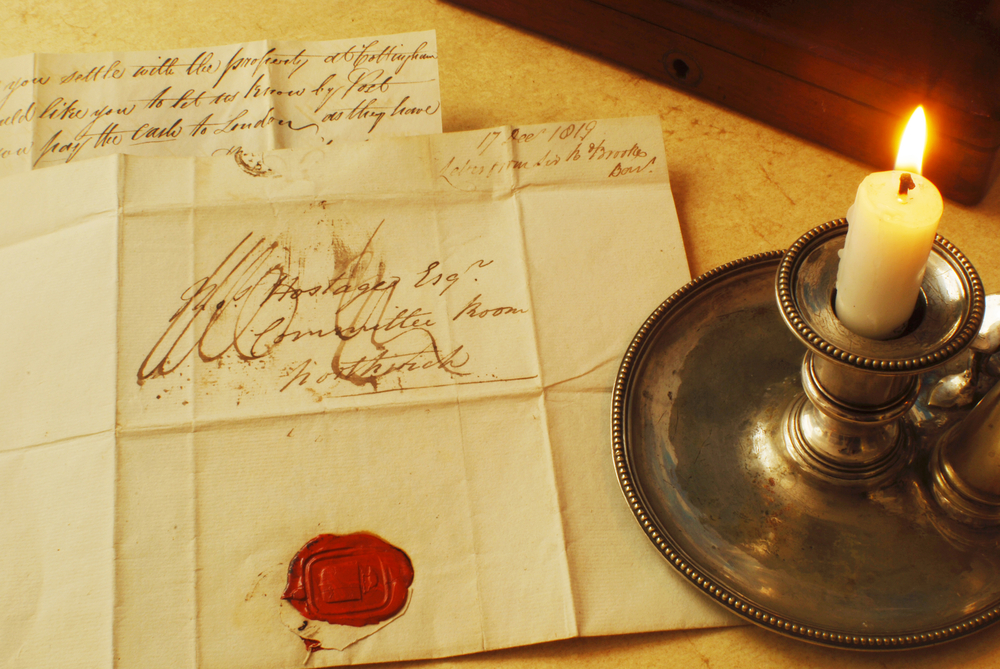 you settle with the property at Cottingham
like you to let us know by Post
pay the Cash to London as they have
17 Decr 1819
Letter from Sir R. Brooke
Bart.
Hostage Esqr
Committee Room
Northwich